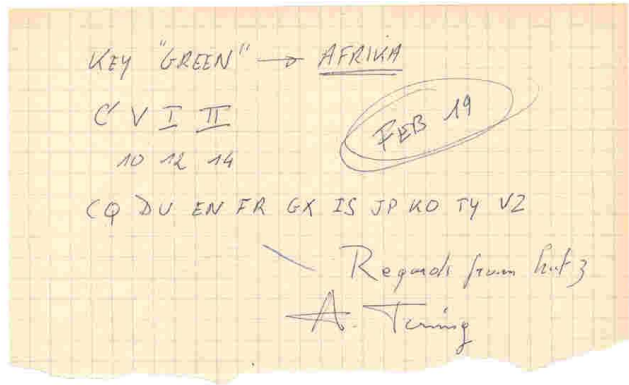 KEY "GREEN" → AFRIKA
C' V I II
FEB 19
10 12 14
CQ DU EN FR GX IS JP KO TY VZ
Regards from hut 3
A. Turing